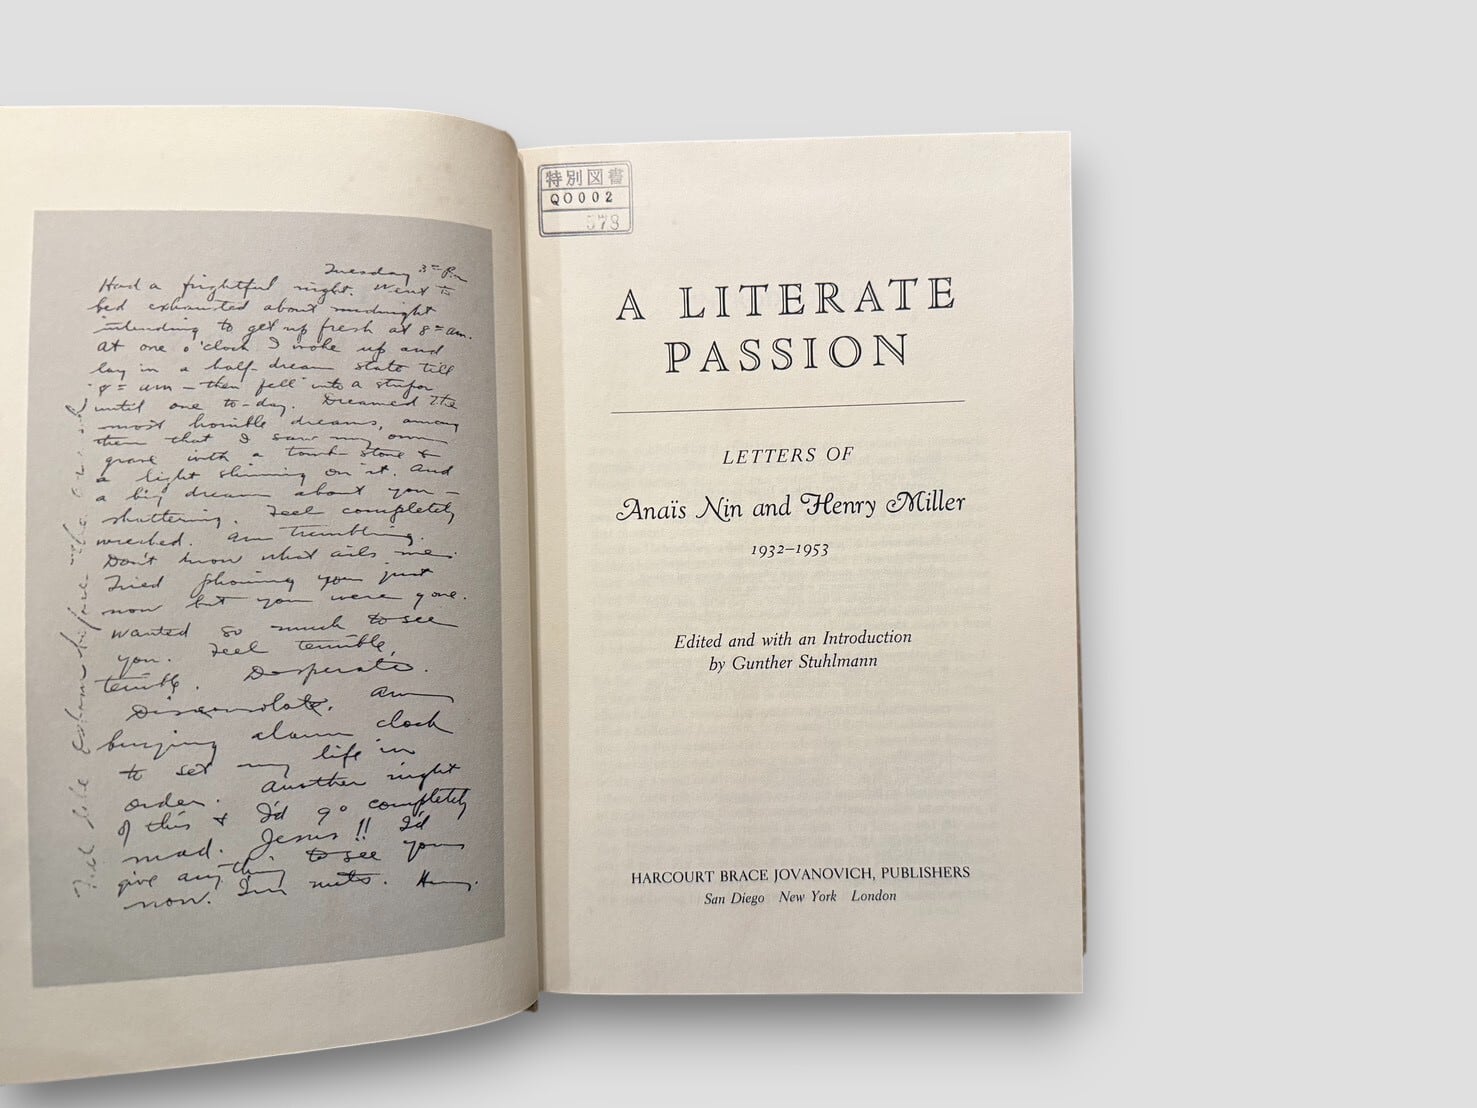 Tuesday 3 = P.m
Had a frightful night. Went to
bed exhausted about midnight
intending to get up fresh at 8 = am.
At one o'clock I woke up and
lay in a half-dream state till
8 = am — then fell into a stupor
until one to-day. Dreamed the
most horrible dreams, among
them that I saw my own
grave with a tomb-stone &
a light shining on it. And
a big dream about you —
shattering. Feel completely
wrecked. Am trembling.
Don't know what ails me.
Tried phoning you just
now but you were gone.
Wanted so much to see
you. Feel terrible,
terrible. Desperate.
Disconsolate. Am
buying alarm clock
to set my life in
order. Another night
of this & I'd go completely
mad. Jesus!! I'd
give anything to see you
now. I'm nuts. Henry.
Feel like
特別図書
QO002
578
A LITERATE
PASSION
LETTERS OF
Anaïs Nin and Henry Miller
1932–1953
Edited and with an Introduction
by Gunther Stuhlmann
HARCOURT BRACE JOVANOVICH, PUBLISHERS
San Diego New York London